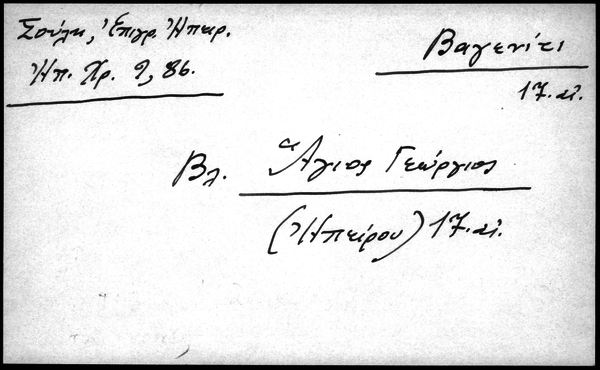 Σούλη, Ἐπιγρ. Ἠπειρ.
Ἠπ. Χρ. 9, 86.
Βαγενίτι
17. αἰ.
Βλ. Ἅγιος Γεώργιος
(Ἠπείρου) 17. αἰ.